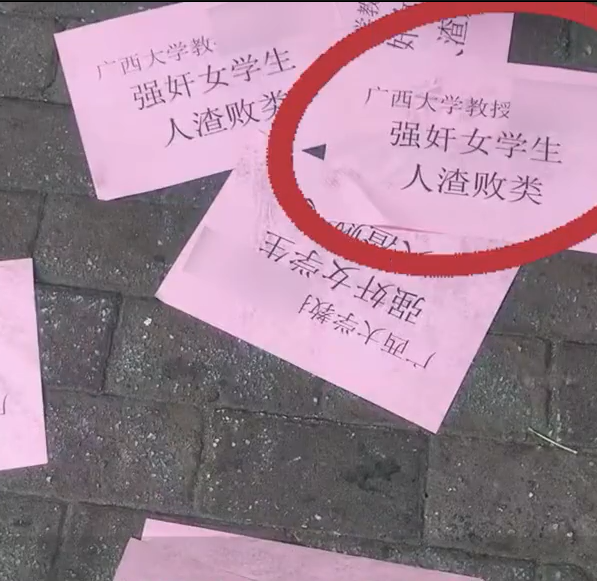 广西大学教
强奸女学生
人渣败类
广西大学教授
强奸女学生
人渣败类
广西大学教
强奸女学生
人渣